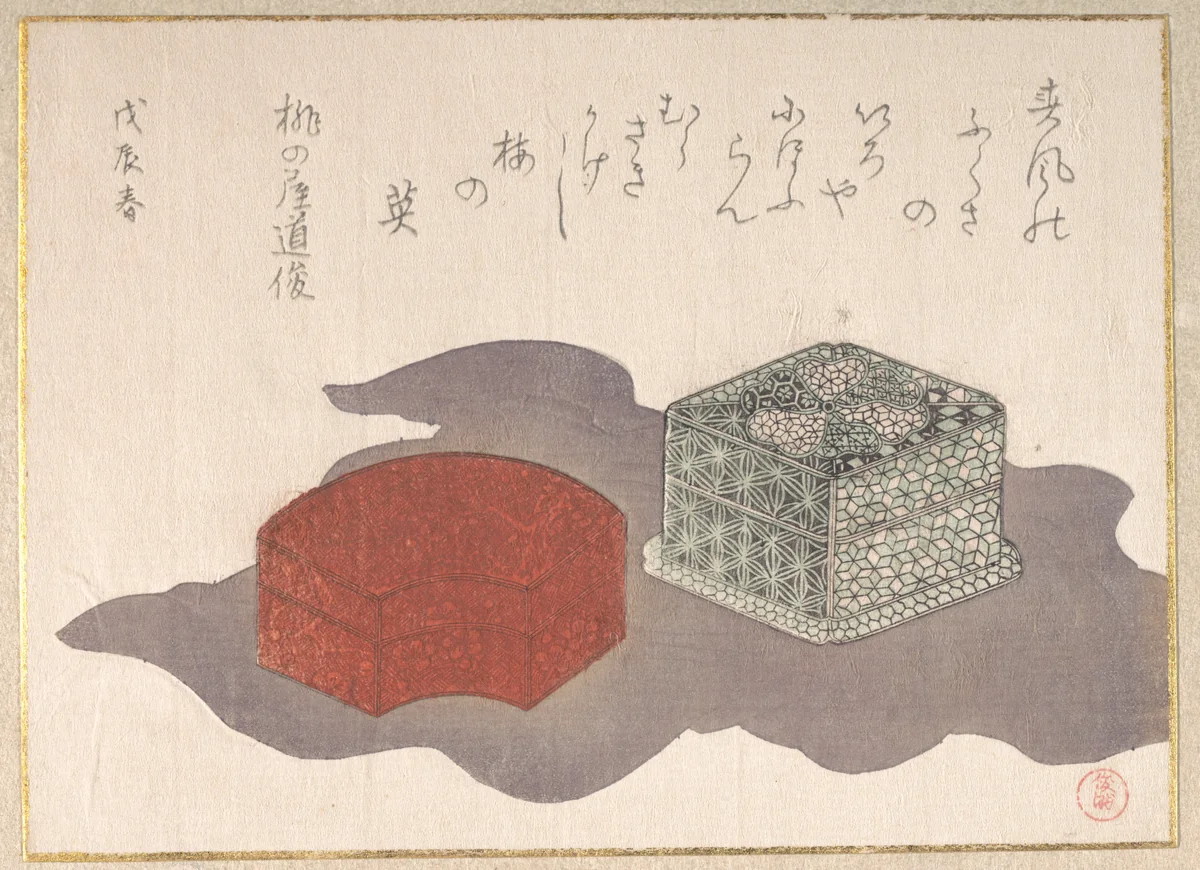 春風の
ふくさ
の
いろ
や
にほふ
らん
むら
さき
かけし
梅
の
英
桃の屋道俊
戊辰春
俊満